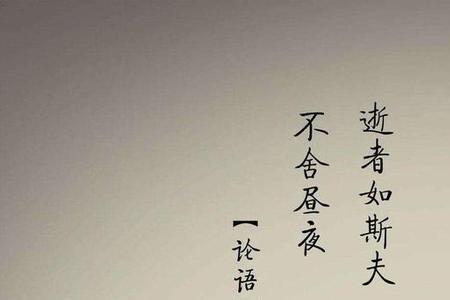 逝者如斯夫
不舍昼夜
【论语